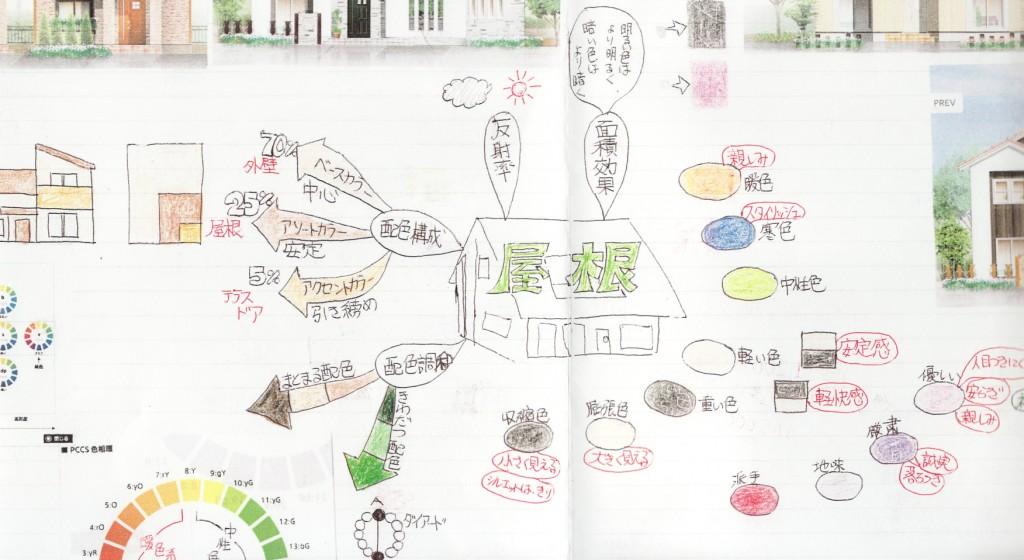 明るい色は
より明るく
暗い色は
より暗く
PREV
反射率
面積効果
70%
外壁
ベースカラー
中心
25%
屋根
アソートカラー
安定
5%
テラス
ドア
アクセントカラー
引き締め
配色構成
屋根
親しみ
暖色
スタイリッシュ
寒色
中性色
配色調和
まとまる配色
きわだつ配色
軽い色
安定感
重い色
軽快感
優しい
人目つきにく
安らぎ
親しみ
収縮色
小さく見える
シルエットはっきり
膨張色
大きく見える
厳粛
落ちつき
地味
派手
閉じる
■ PCCS 色相環
3:yR
4:rO
5:O
6:yO
7:rY
8:Y
9:gY
10:yG
11:yG
12:G
13:bG
暖色系
中性色
ダイアード